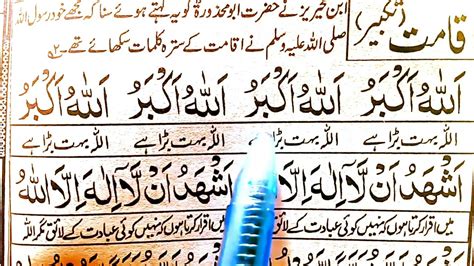 اقامت (تکبیر)
ابن محیریز نے حضرت ابو محذورہ کو یہ کہتے ہوئے سنا کہ مجھے خود رسول اللہ
صلی اللہ علیہ وسلم نے اقامت کے سترہ کلمات سکھائے تھے۔
اَللّٰهُ اَکْبَرُ اَللّٰهُ اَکْبَرُ اَللّٰهُ اَکْبَرُ اَللّٰهُ اَکْبَرُ
اللہ بہت بڑا ہے اللہ بہت بڑا ہے اللہ بہت بڑا ہے اللہ بہت بڑا ہے
اَشْهَدُ اَنْ لَّآ اِلٰهَ اِلَّا اللّٰهُ اَشْهَدُ اَنْ لَّآ اِلٰهَ اِلَّا اللّٰهُ
میں اقرار کرتا ہوں کہ نہیں کوئی عبادت کے لائق مگر اللہ میں اقرار کرتا ہوں کہ نہیں کوئی عبادت کے لائق مگر اللہ